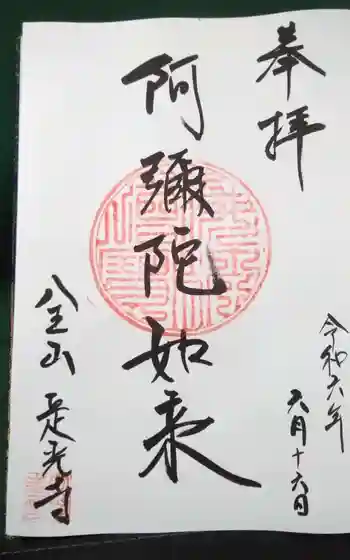 奉拝
令和六年
六月十六日
阿彌陀如来
八全山 是光寺